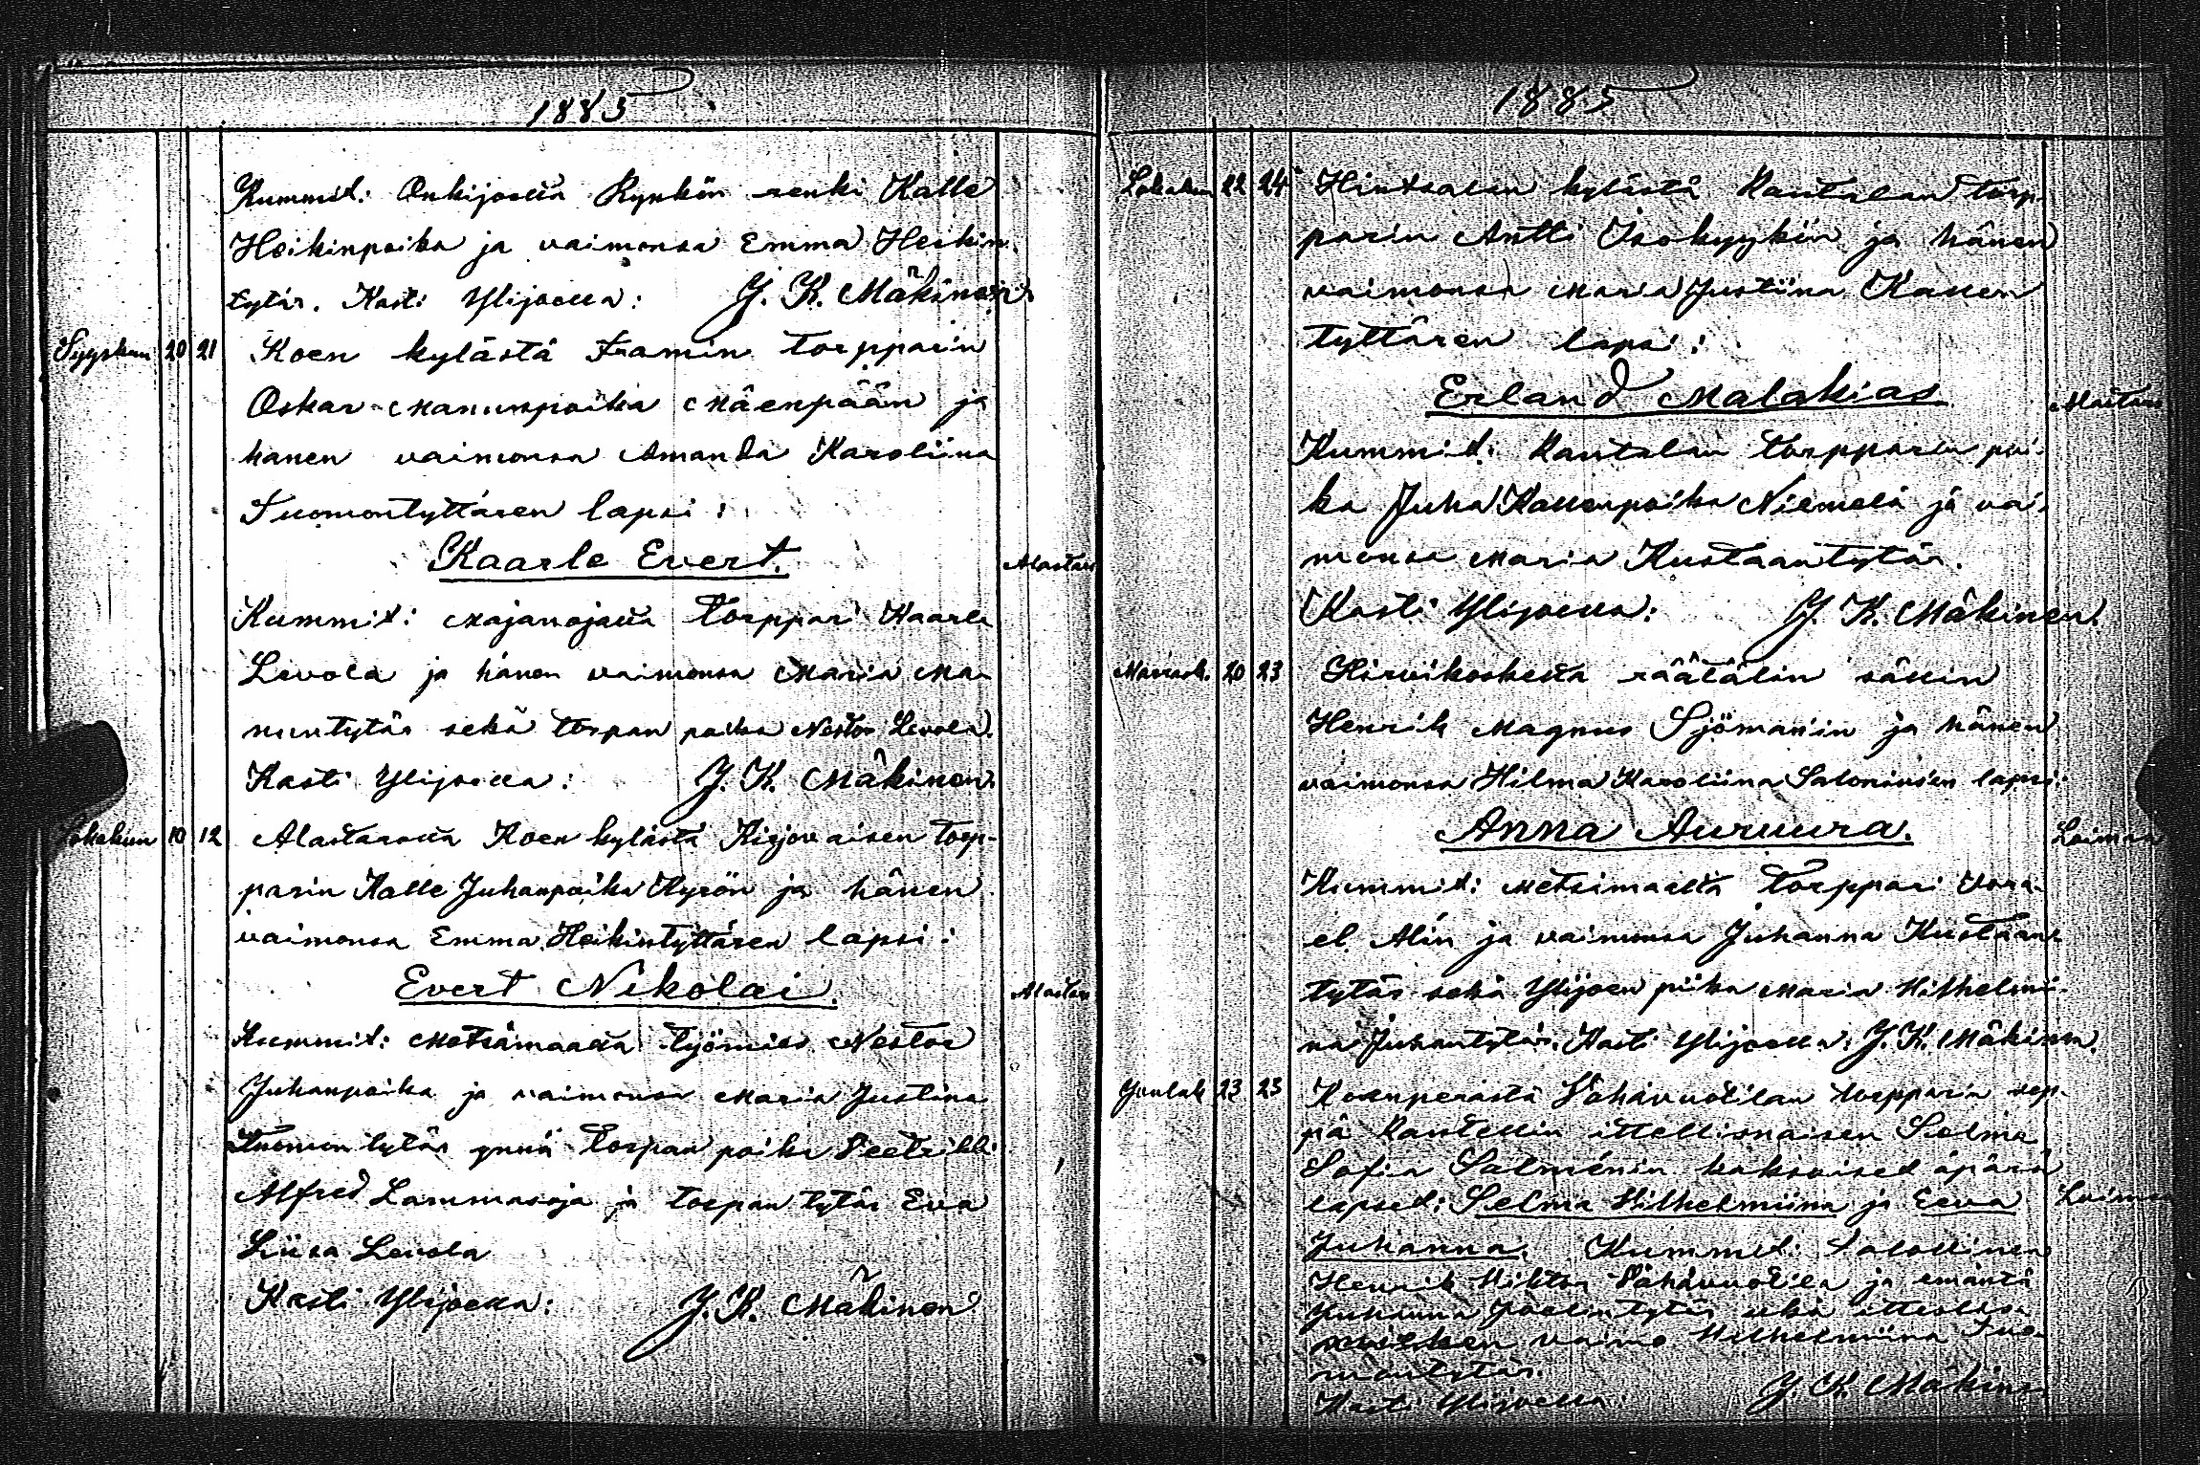 1885
Kummit: Onkijoelta Kynkön renki Kalle
Heikinpoika ja vaimonsa Emma Heikin
tytär. Kasti Ylijoella: J. K. Mäkinen.
Syyskuu 20 21 Koen kylästä Framin torpparin
Oskar Manunpoika Mäenpään ja
hanen vaimonsa Amanda Karoliina
Tuomontyttären lapsi:
Kaarle Evert. Alastaro
Kummit: Majanojalta torppari Kaarle
Levola ja hänen vaimonsa Maria Ma-
nuntytär sekä torpan poika Nestor Levola.
Kasti Ylijoella: J. K. Mäkinen.
Lokakuu 10 12 Alastarolta Koen kylästä Kirjovaisen torp-
parin Kalle Juhanpoika Kyrön ja hänen
vaimonsa Emma Heikintyttären lapsi:
Evert Nikolai. Alastaro
Kummit: Metsämaalta työmies Nestor
Juhanpoika ja vaimonsa Maria Justina
Tuomontytär ynnä torpan poika Feetrikki
Alfred Lammasoja ja torpan tytär Eva
Liisa Levola
Kasti Ylijoella: J. K. Mäkinen
1885
Lokakuu 22 24 Hintsalan kylästä Rautalan torp-
parin Antti Isokyykän ja hänen
vaimonsa Maria Justiina Kallen
tyttären lapsi:
Erland Malakias Alastaro
Kummit: Rautalan torpparin poi-
ka Juha Kallenpoika Niemelä ja vai-
monsa Maria Kustaantytär.
Kasti Ylijoella: J. K. Mäkinen.
Marrask. 20 23 Hirvikoskelta räätälin sällin
Henrik Magnus Sjömanin ja hänen
vaimonsa Hilma Karoliina Saloniuksen lapsi:
Anna Auruura. Loimaa
Kummit: Metsämaalta torppari Isra-
el Alin ja vaimonsa Juhanna Kustaan-
tytär sekä Ylijoen piika Maria Wilhelmii-
na Juhantytär. Kasti Ylijoella: J. K. Mäkinen.
Jouluk 23 25 Koenperästä Vähävuotilan torpparin sep-
pä Rantellin itsellisnaisen Selma
Sofia Salménin kaksoiset äpärä
lapset: Selma Wilhelmiina ja Eeva Loimaa
Juhanna. Kummit: talollinen
Henrik Wiktor Vähävuotila ja emäntä
Juhanna Joelintytär sekä
vaimo Wilhelmiina Tuo-
montytär.
Kasti Ylijoella: J. K. Mäkinen